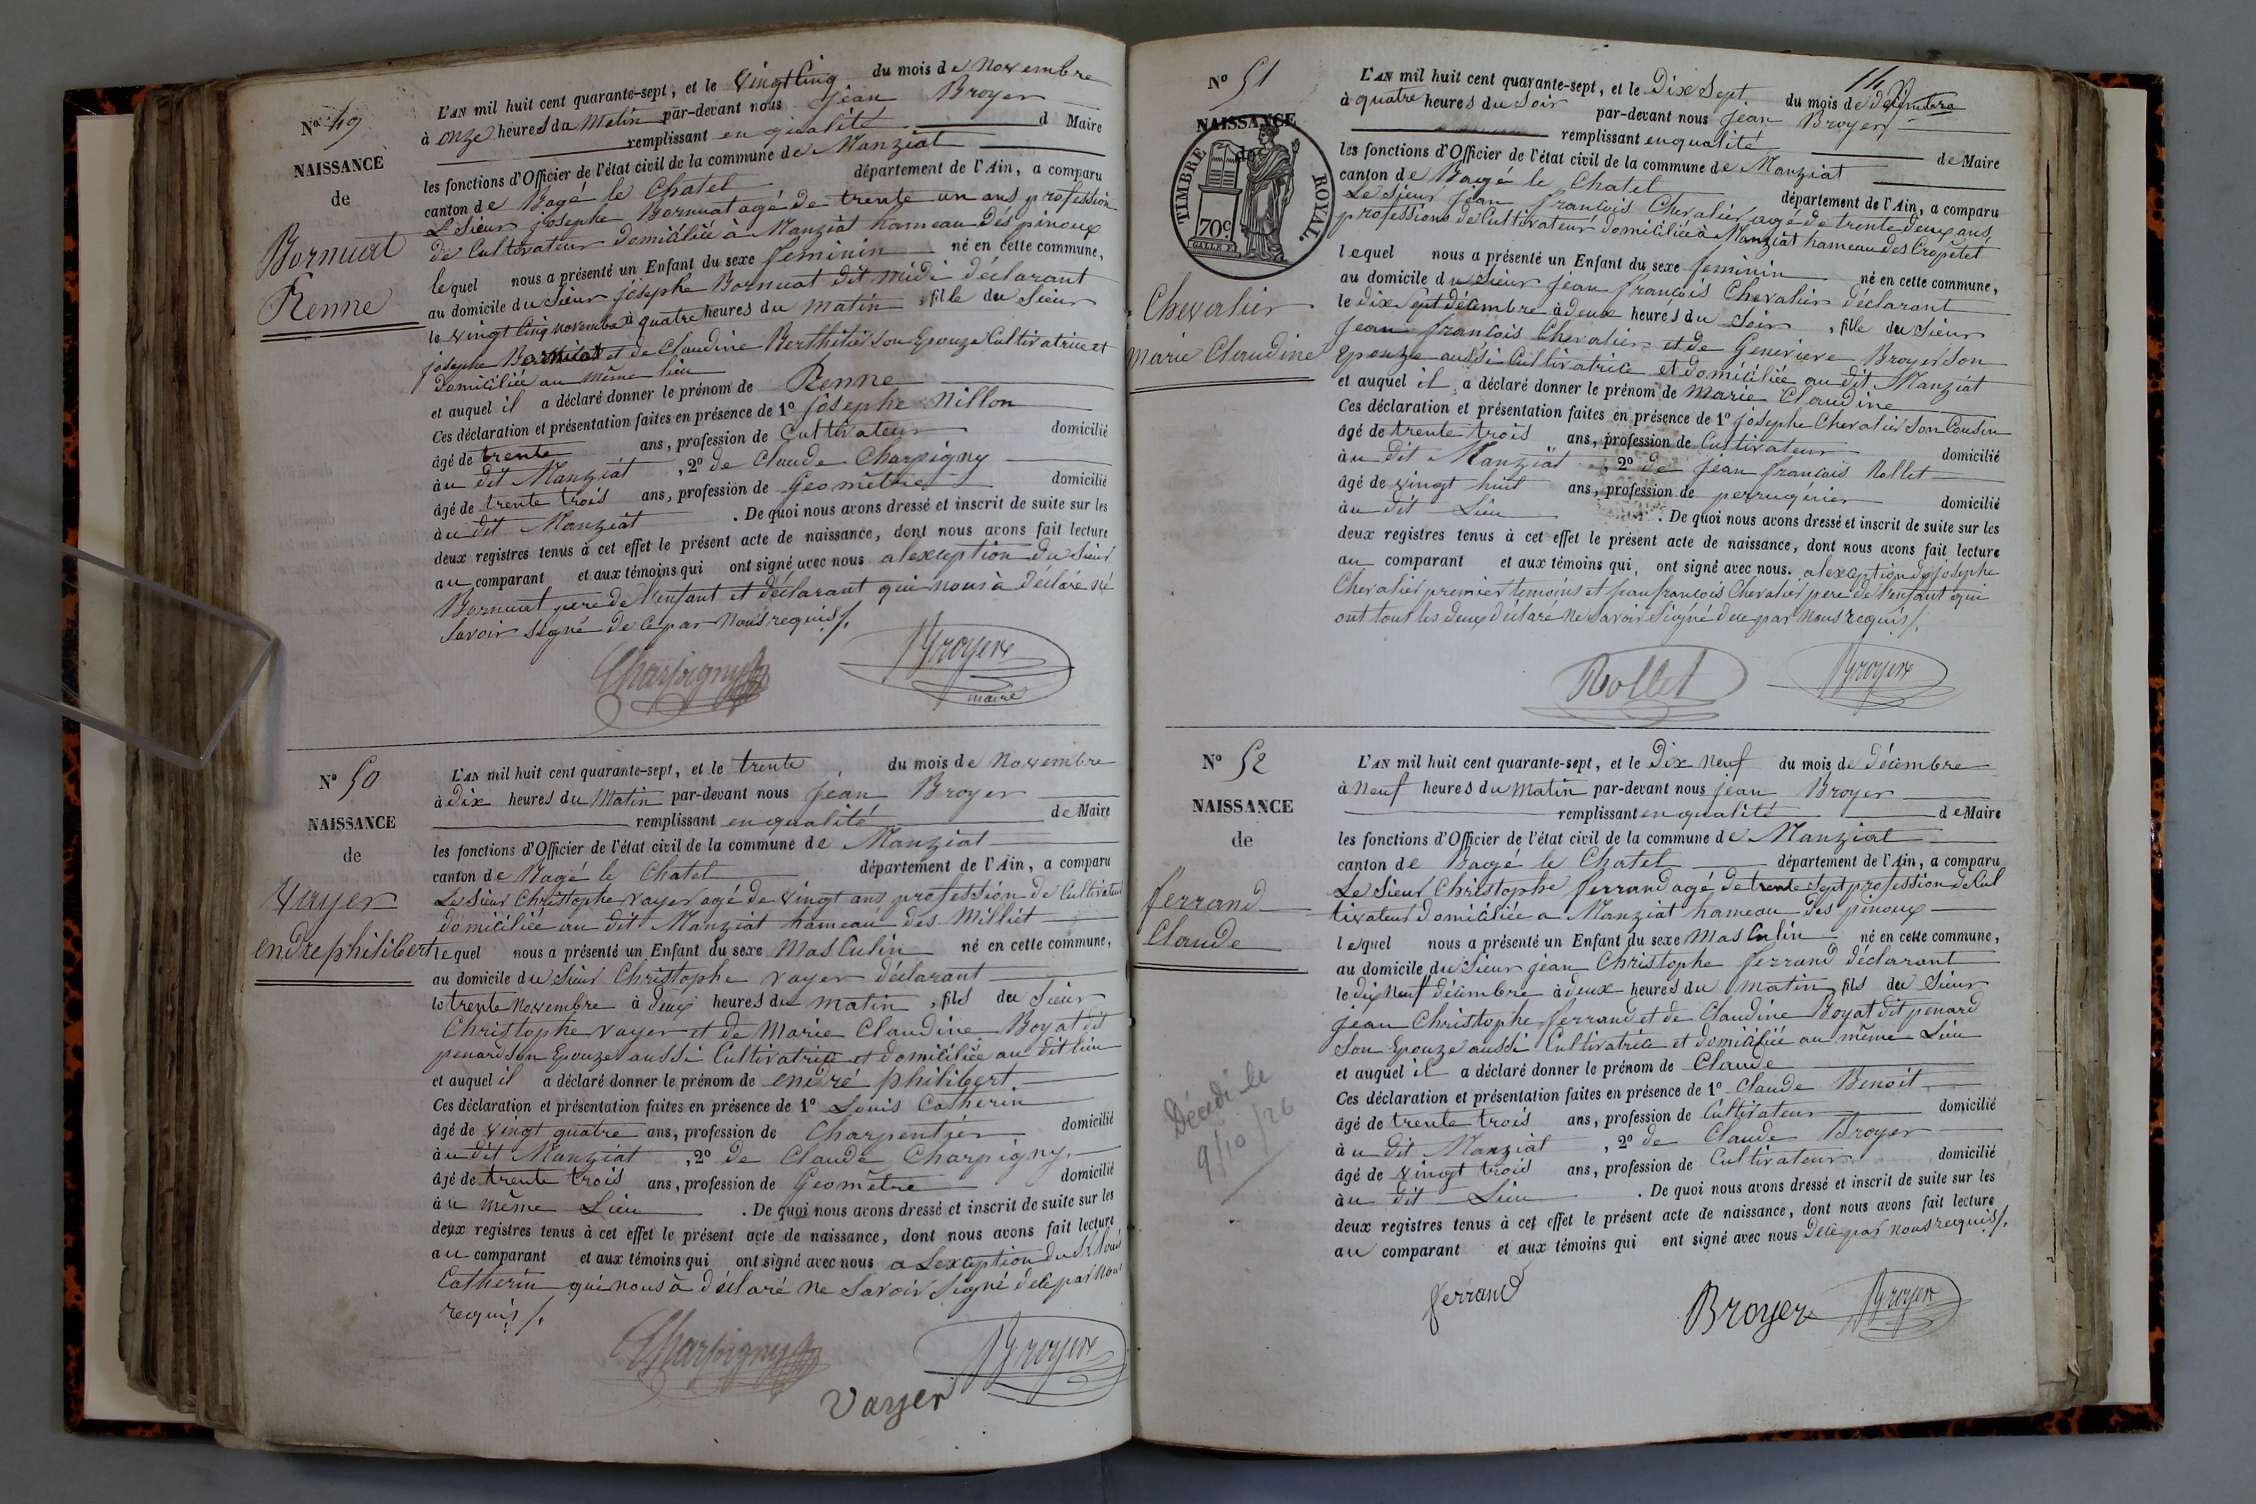 N° 49
NAISSANCE
de
Bornuat
Renne
L'AN mil huit cent quarante-sept, et le vingt Cinq du mois de Novembre
à onze heures du Matin par-devant nous jean Broyer
remplissant en qualité d Maire
les fonctions d'Officier de l'état civil de la commune de Manziat
canton de Bagé le Chatel département de l'Ain, a comparu
Le Sieur josephe Bornuat agé de trente un ans profession
de Cultivateur domiciliée à Manziat hameau des pinoux
lequel nous a présenté un Enfant du sexe feminin né en cette commune,
au domicile du Sieur josephe Bornuat dit midi déclarant
le vingt Cinq novembre à quatre heures du matin , fille du Sieur
josephe Bornuat et de Claudine Berthilié son Epouze Cultivatrice et
domiciliée au même lieu
et auquel il a déclaré donner le prénom de Renne
Ces déclaration et présentation faites en présence de 1° josephe Nillon
âgé de trente ans, profession de Cultivateur domicilié
à u dit Manziat , 2° de Claude Charpigny
âgé de trente trois ans, profession de Geomètre domicilié
à u dit Manziat . De quoi nous avons dressé et inscrit de suite sur les
deux registres tenus à cet effet le présent acte de naissance, dont nous avons fait lecture
au comparant et aux témoins qui ont signé avec nous a lexception du Sieur
Bornuat pere de l'enfant et déclarant qui nous à déclaré né
Savoir signé de ce par Nous requis /.
Charpigny Broyer
maire
N° 50
NAISSANCE
de
Vayer
endre philibert
L'AN mil huit cent quarante-sept, et le trente du mois de Novembre
à Dix heures du Matin par-devant nous jean Broyer
remplissant en qualité de Maire
les fonctions d'Officier de l'état civil de la commune de Manziat
canton de Bagé le Chatel département de l'Ain, a comparu
Le Sieur Christophe vayer agé de vingt ans profession de Cultivateur
domiciliée au dit Manziat hameau des Milliet
lequel nous a présenté un Enfant du sexe Masculin né en cette commune,
au domicile du Sieur Christophe vayer déclarant
le trente Novembre à deux heures du matin , fils du Sieur
Christophe vayer et de Marie Claudine Boyat dit
penard son Epouze aussi Cultivatrice et domiciliée au dit lieu
et auquel il a déclaré donner le prénom de endré philibert.
Ces déclaration et présentation faites en présence de 1° Louis Catherin
âgé de vingt quatre ans, profession de Charpentier domicilié
à u dit Manziat , 2° de Claude Charpigny.
âgé de trente trois ans, profession de Geomètre domicilié
à u même Lieu . De quoi nous avons dressé et inscrit de suite sur les
deux registres tenus à cet effet le présent acte de naissance, dont nous avons fait lecture
au comparant et aux témoins qui ont signé avec nous a Lexception du Sr Louis
Catherin qui nous à déclaré ne Savoir Signé de ce par Nous
requis /.
Charpigny Broyer
Vayer
N° 51
NAISSANCE
TIMBRE ROYAL.
70c
Chevalier
Marie Claudine
L'AN mil huit cent quarante-sept, et le Dix Sept du mois de décembre
à quatre heures du Soir par-devant nous jean Broyer
remplissant en qualité de Maire
les fonctions d'Officier de l'état civil de la commune de Manziat
canton de Bagé le Chatel département de l'Ain, a comparu
Le Sieur jean francois Chevalier agé de trente deux ans
professions de Cultivateur domiciliée à Manziat hameau des Cropetet
lequel nous a présenté un Enfant du sexe feminin né en cette commune,
au domicile du Sieur jean francois Chevalier déclarant
le dix Sept décembre à deux heures du Soir , fille du Sieur
jean francois Chevalier et de Genevieve Broyer son
Epouze aussi Cultivatrice et domiciliée au dit Manziat
et auquel il a déclaré donner le prénom de Marie Claudine
Ces déclaration et présentation faites en présence de 1° josephe Chevalier Son Cousin
âgé de trente trois ans, profession de Cultivateur domicilié
à u dit Manziat , 2° de jean francois Rollet
âgé de vingt huit ans, profession de perrugérier domicilié
à u dit Lieu . De quoi nous avons dressé et inscrit de suite sur les
deux registres tenus à cet effet le présent acte de naissance, dont nous avons fait lecture
au comparant et aux témoins qui ont signé avec nous. a lexception de josephe
Chevalier premier temoins et jean francois Chevalier pere de l'enfant qui
ont tout les deux déclaré ne Savoir Signé de ce par Nous requis /.
Rollet Broyer
N° 52
NAISSANCE
de
ferrand
Claude
Décédé le
9/10/26
L'AN mil huit cent quarante-sept, et le Dix Neuf du mois de décembre
à Neuf heures du Matin par-devant nous jean Broyer
remplissant en qualité de Maire
les fonctions d'Officier de l'état civil de la commune de Manziat
canton de Bagé le Chatel département de l'Ain, a comparu
Le Sieur Christophe ferrand agé de trente Sept profession de Cul
tivateur domiciliée a Manziat hameau des pinoux
lequel nous a présenté un Enfant du sexe Masculin né en cette commune,
au domicile du Sieur jean Christophe ferrand déclarant
le dix Neuf décembre à deux heures du matin , fils du Sieur
jean Christophe ferrand et de Claudine Boyat dit penard
Son Epouze aussi Cultivatrice et domiciliée au même Lieu
et auquel il a déclaré donner le prénom de Claude
Ces déclaration et présentation faites en présence de 1° Claude Benoit
âgé de trente trois ans, profession de Cultivateur domicilié
à u dit Manziat , 2° de Claude Broyer
âgé de vingt trois ans, profession de Cultivateur domicilié
à u dit Lieu . De quoi nous avons dressé et inscrit de suite sur les
deux registres tenus à cet effet le présent acte de naissance, dont nous avons fait lecture
au comparant et aux témoins qui ont signé avec nous de ce par nous requis /.
ferrand Broyer Broyer